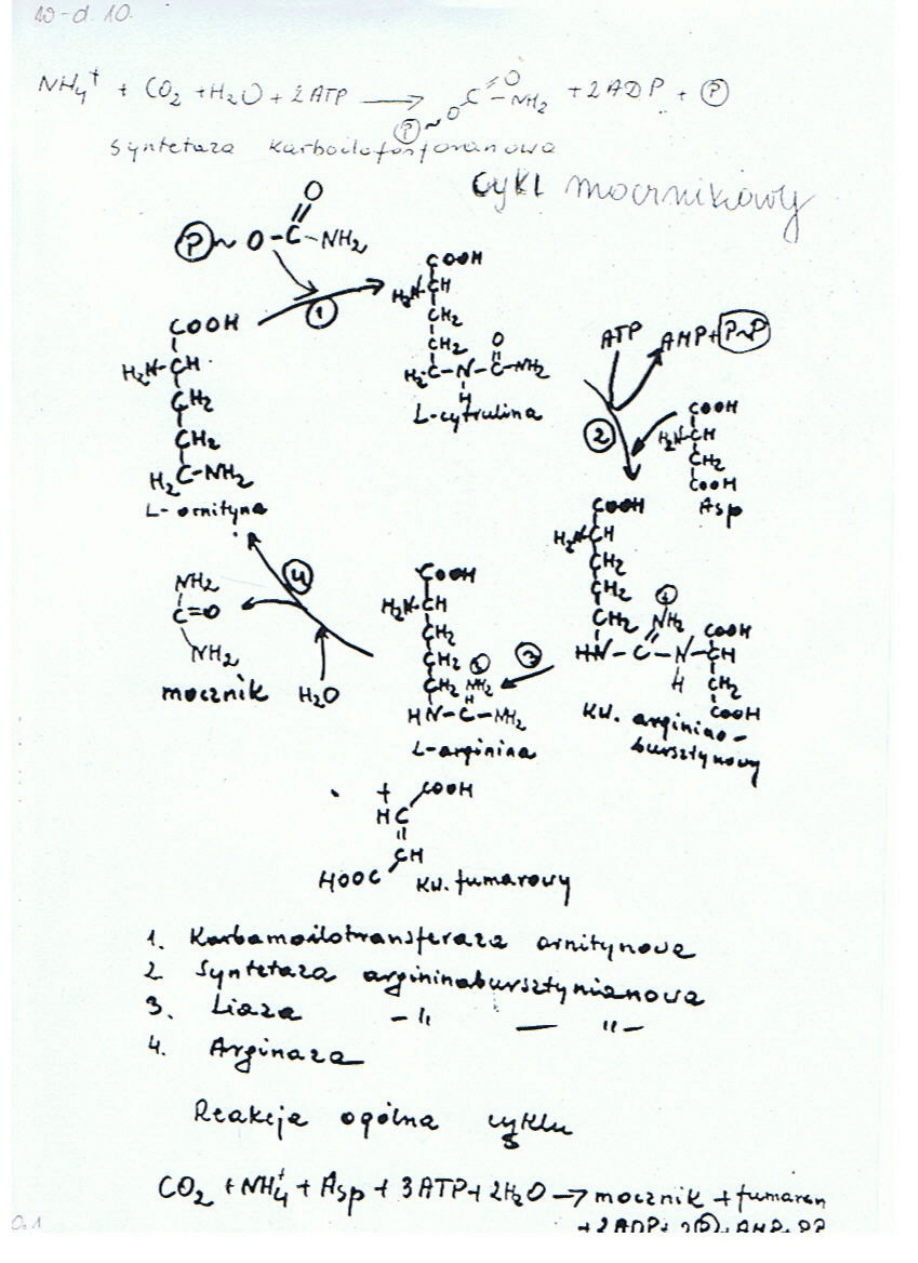 NH₄⁺ + CO₂ + H₂O + 2ATP → Ⓟ~O-C(=O)-NH₂ + 2ADP + Ⓟ
Syntetaza karboilofosforanowa
Cykl mocznikowy
Ⓟ~O-C-NH₂
O
①
COOH
H₂N-CH
CH₂
CH₂
H₂C-NH₂
L-ornityna
COOH
H₂N-CH
CH₂
CH₂
O
H₂C-N-C-NH₂
H
L-cytrulina
ATP
AMP + P~P
②
COOH
H₂N-CH
CH₂
COOH
Asp
COOH
H₂N-CH
CH₂
CH₂
CH₂ NH₂ COOH
HN-C-N-CH
H CH₂
COOH
kw. arginino-
bursztynowy
③
COOH
H₂N-CH
CH₂
CH₂
CH₂ NH₂
HN-C-NH₂
L-arginina
④
NH₂
C=O
NH₂
mocznik
H₂O
+ COOH
HC
CH
HOOC
kw. fumarowy
1. Karbamoilotransferaza ornitynowa
2 Syntetaza argininobursztynianowa
3. Liaza -"- — "-
4. Arginaza
Reakcja ogólna cyklu
CO₂ + NH₄⁺ + Asp + 3ATP + 2H₂O → mocznik + fumaran